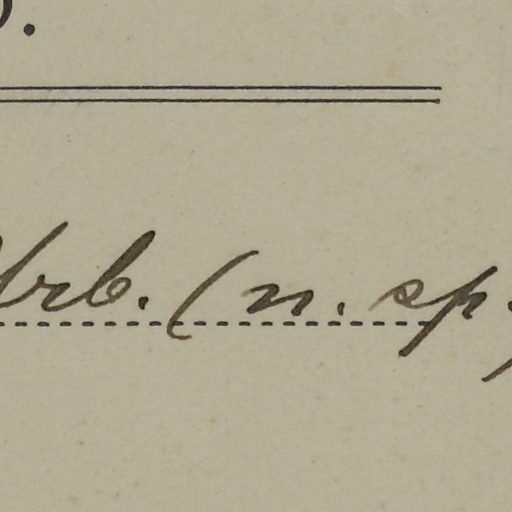 Urb. (n. sp.)